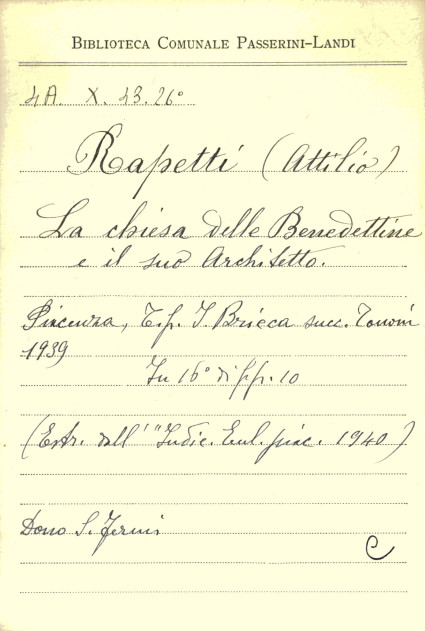 BIBLIOTECA COMUNALE PASSERINI-LANDI
4A. X. 43. 26°
Rapetti (Attilio)
La chiesa delle Benedettine
e il suo Architetto.
Piacenza, Tip. Brieca succ.
1939
In 16° di pp. 10
(Estr. dall'"Indic. Eccl. piac. 1940)
Dono S. Fermi
C